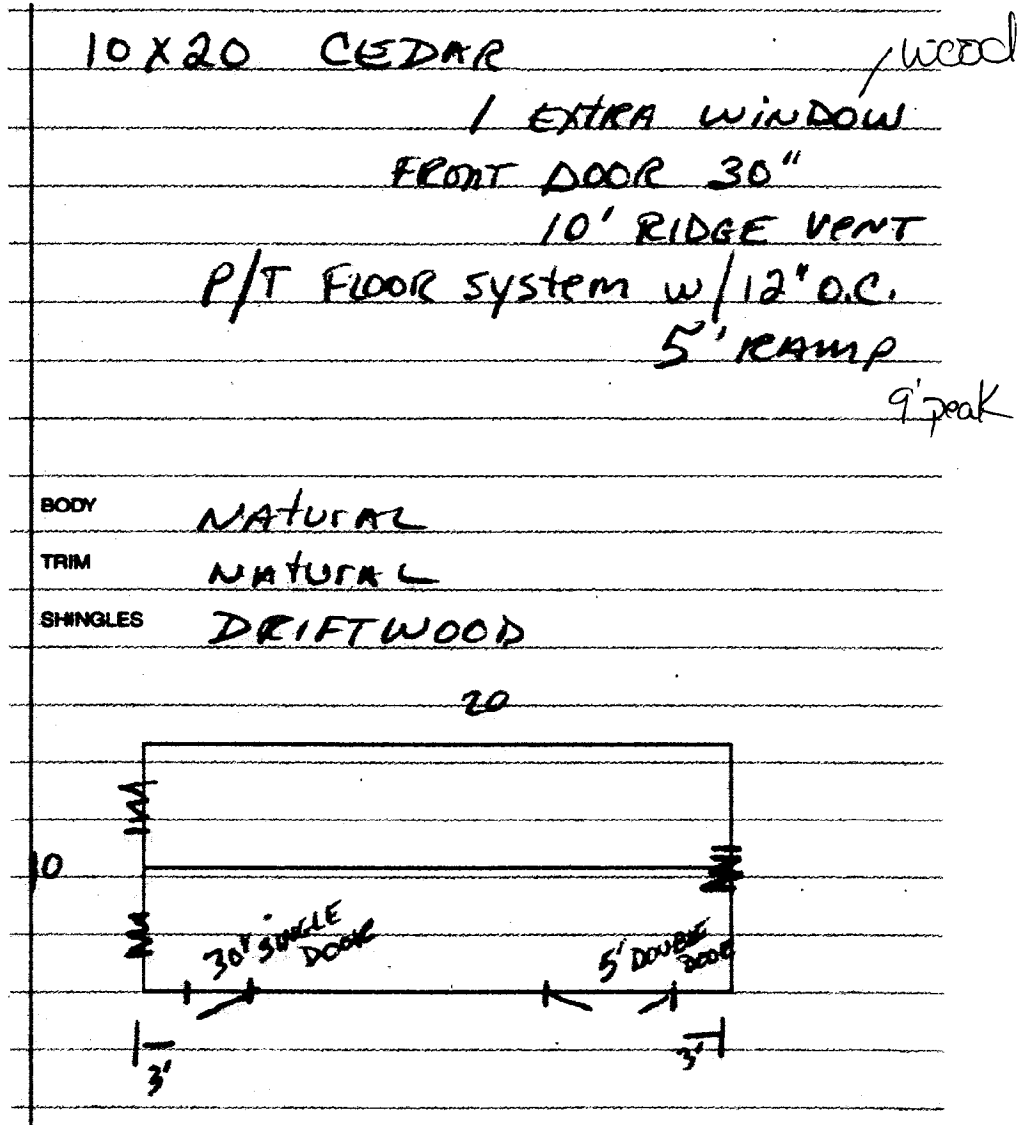 10 X 20 CEDAR
wood
1 EXTRA WINDOW
FRONT DOOR 30"
10' RIDGE VENT
P/T FLOOR SYSTEM W/12" O.C.
5' RAMP
9' peak
BODY NATURAL
TRIM NATURAL
SHINGLES DRIFTWOOD
20
10
30" SINGLE DOOR
5' DOUBLE DOOR
3'
3'